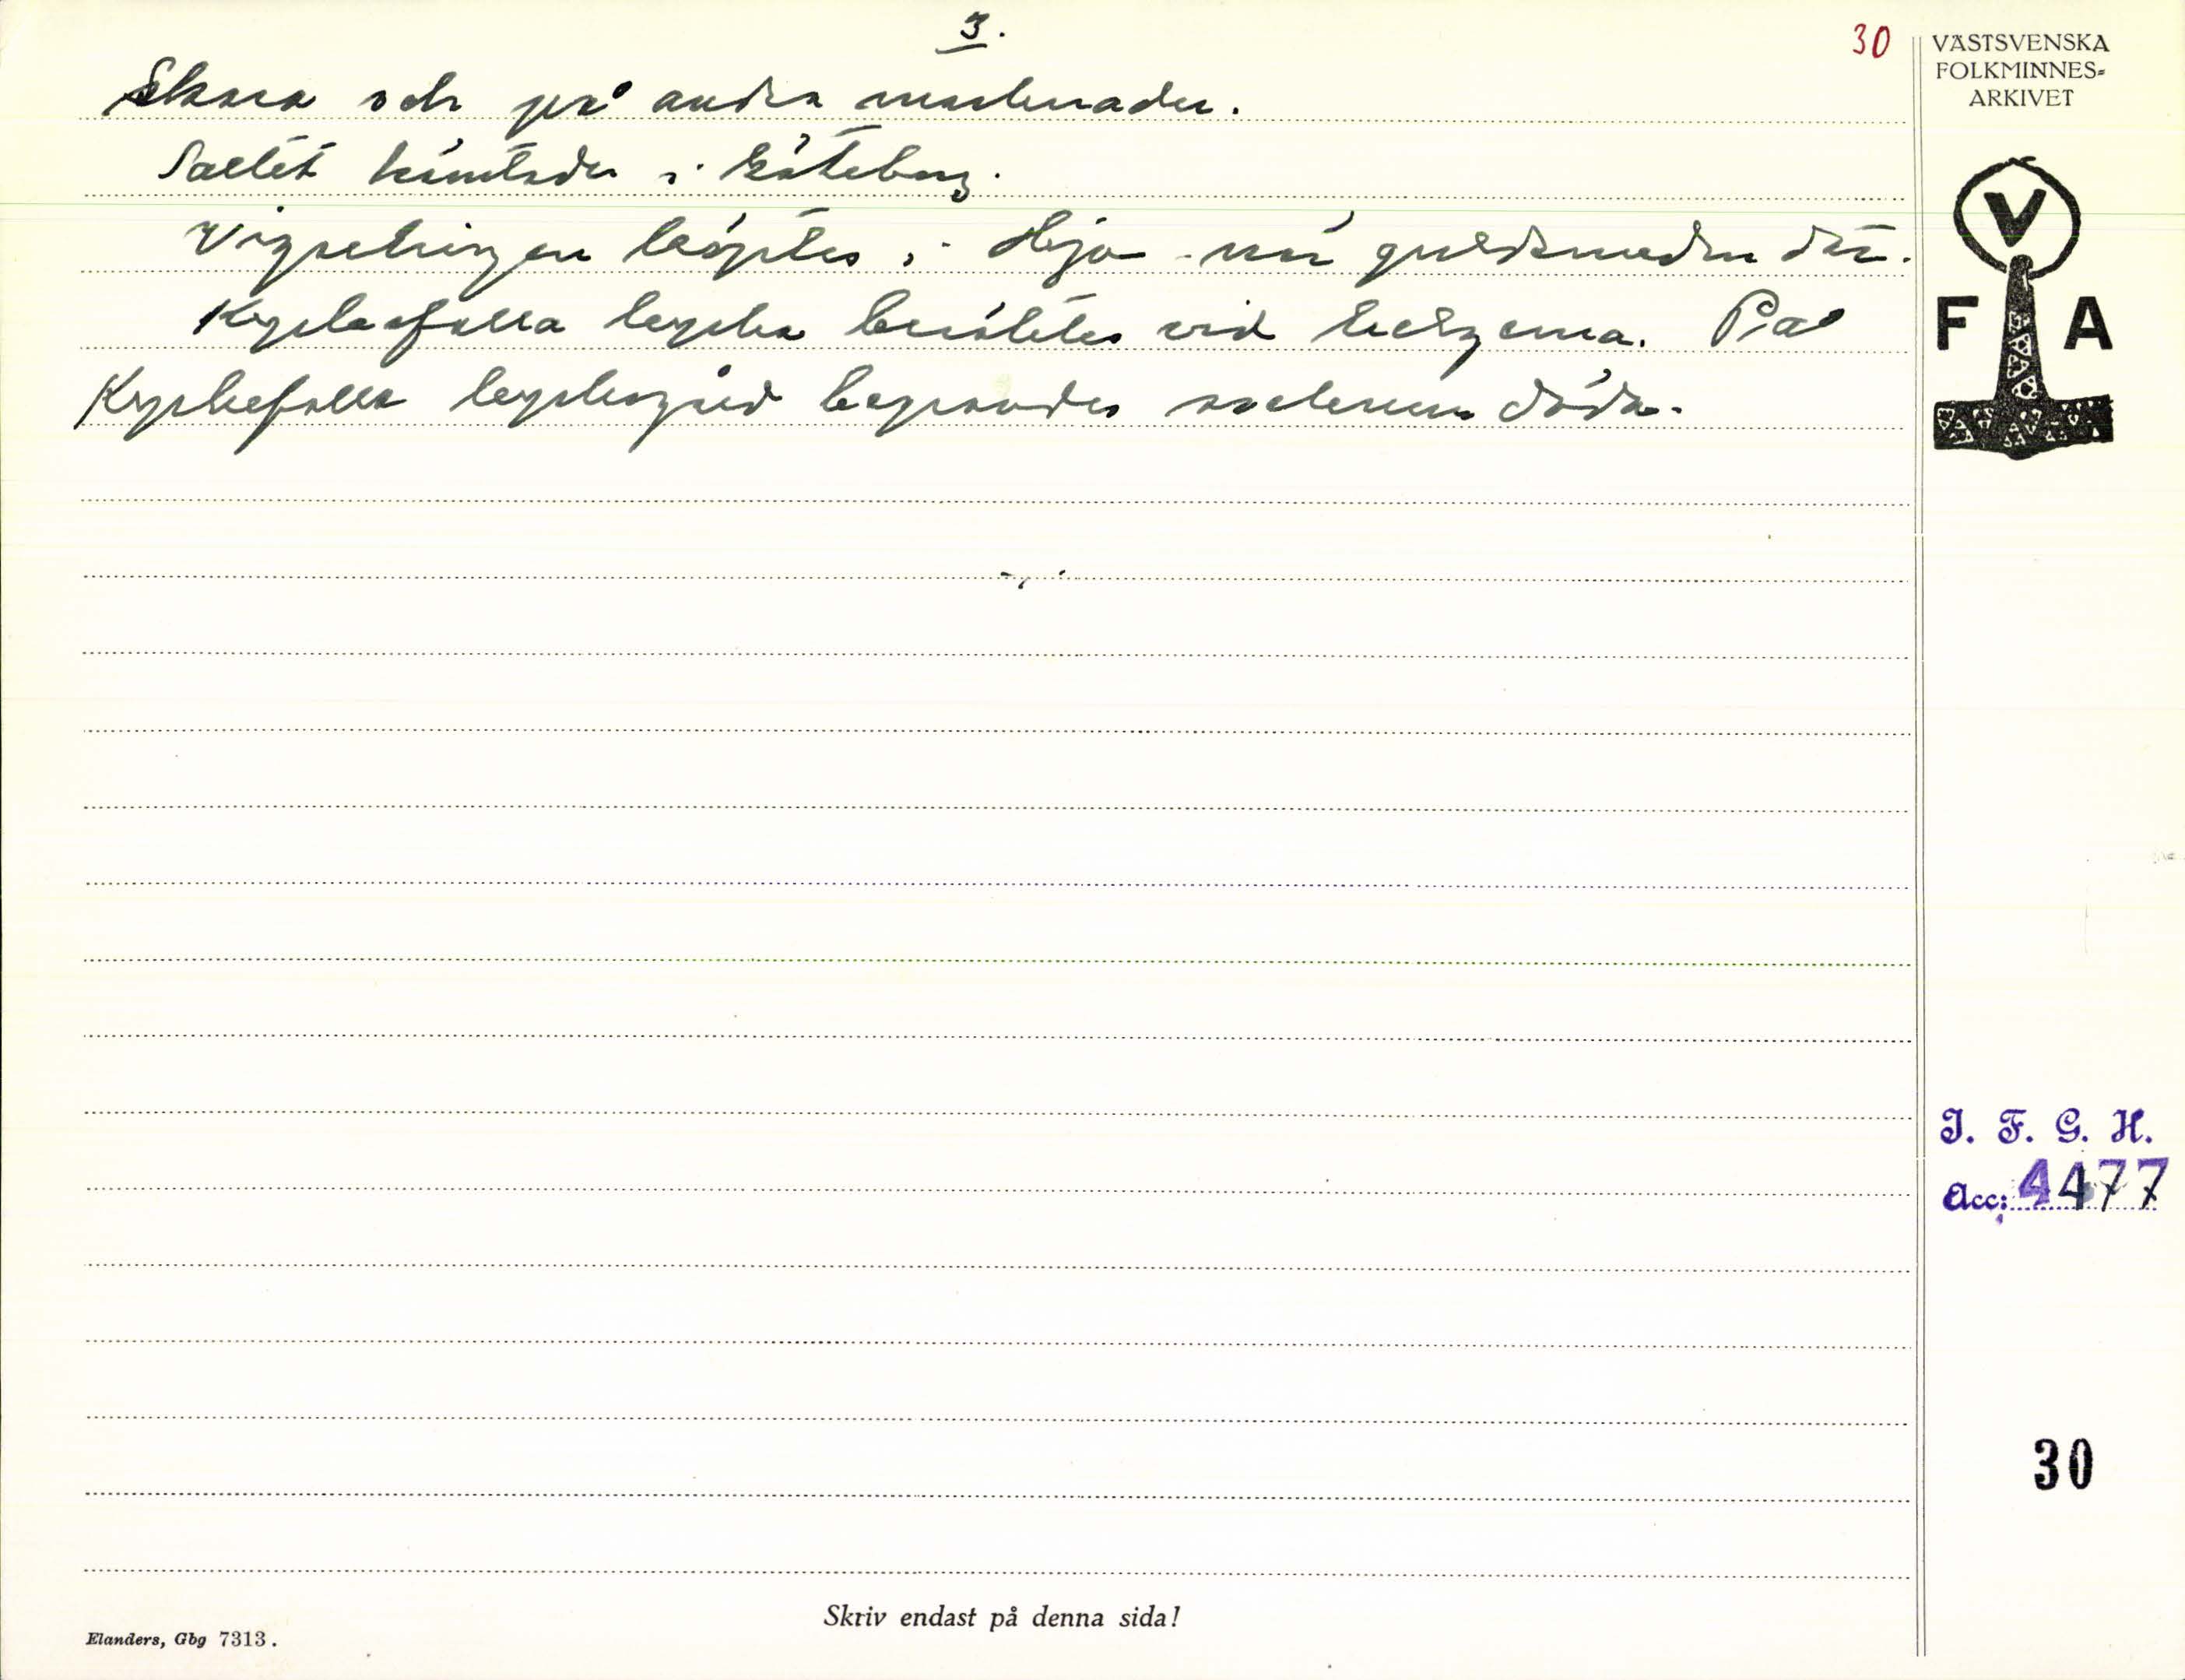 3.
30
Skara och på andra marknader.
Saltet hämtades i Göteborg.
Vigselringen köptes i Hjo när guldsmeden där.
Kyrkefalla kyrka besöktes vid helgerna. På
Kyrkefalla kyrkogård begravdes socknens döda.
VÄSTSVENSKA
FOLKMINNES-
ARKIVET
V
F A
I. F. G. H.
Acc: 4477
30
Skriv endast på denna sida!
Elanders, Gbg 7313.